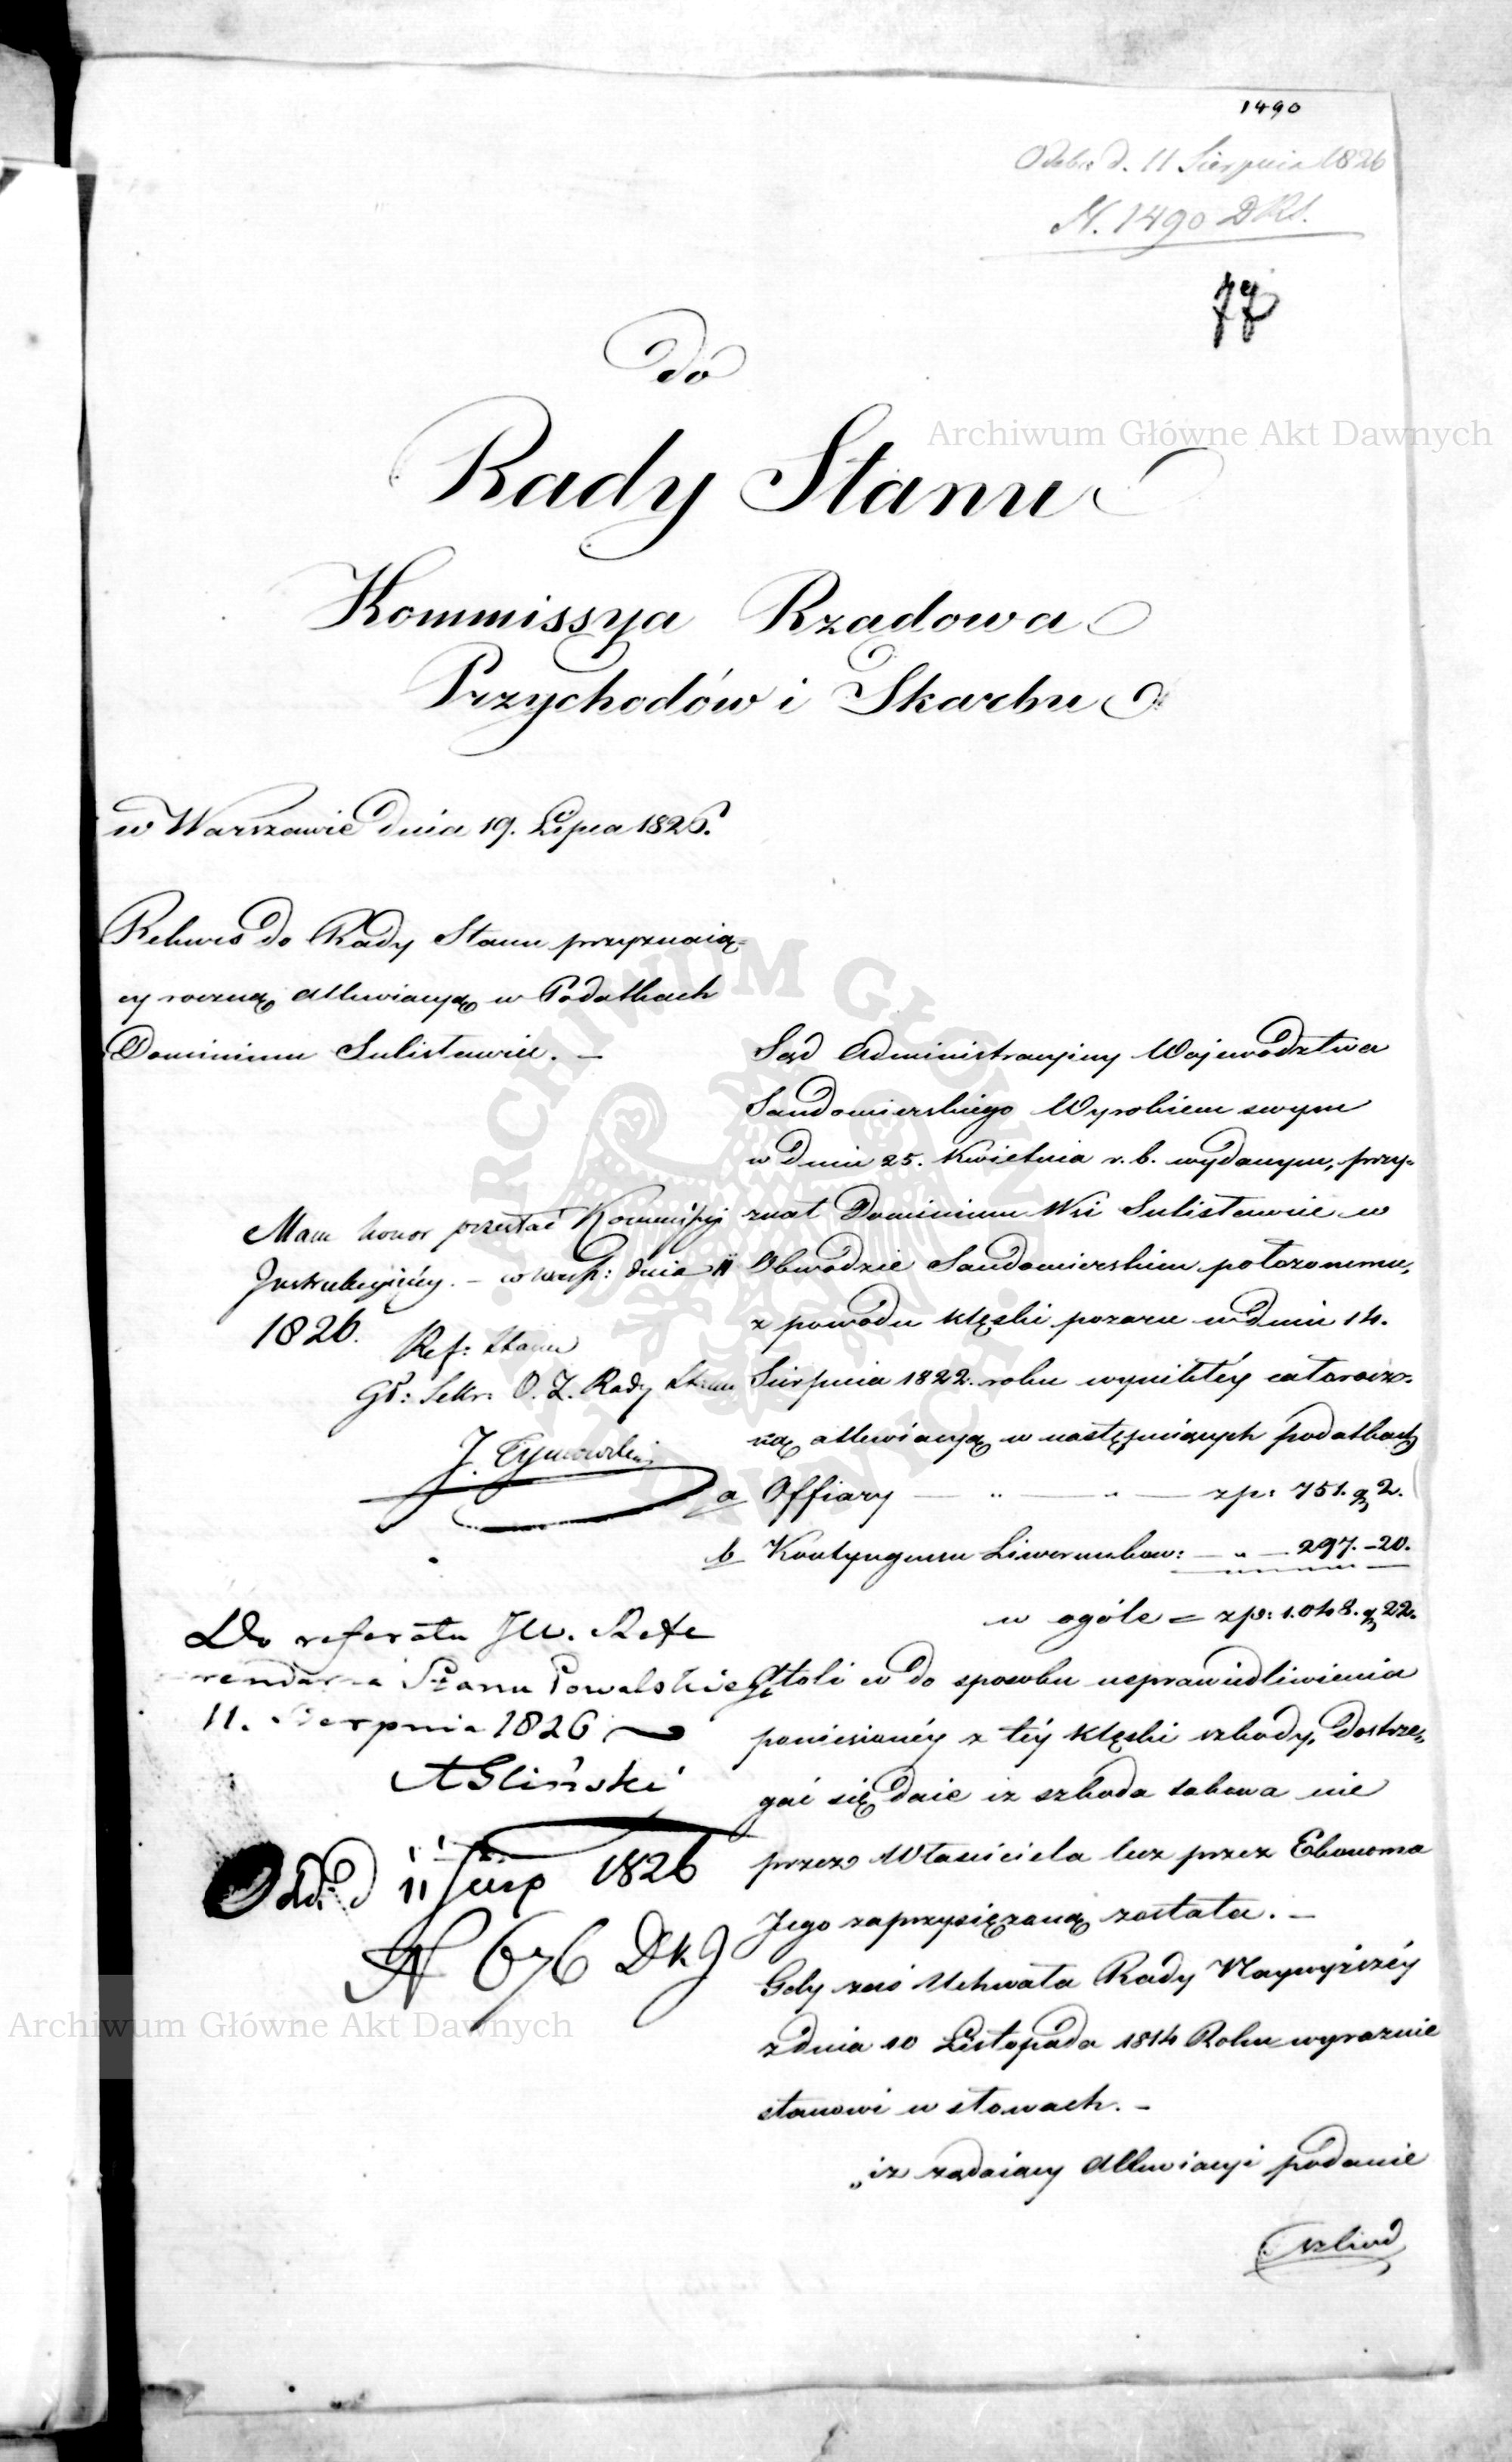 1490
Odebr. d. 11 Sierpnia 1826
N. 1490 DRS.
77
do
Rady Stanu
Kommissya Rządowa
Przychodów i Skarbu
w Warszawie dnia 19. Lipca 1826.
Rekurs do Rady Stanu przyznaią-
cy roczną allewiacyą w Podatkach
Dominium Sulisławice. –
Mam honor przesłać Kommissyi
Instrukcyinéy. – w Warsz: dnia 11
1826.
Ref: Stanu
Gł: Sekr: O. Z. Rady Stanu
J. Tymowski
Do referatu JW. Refe
rendarza Stanu Powalskiego
11. Sierpnia 1826
A Gliński
Odeb. d 11 Sierp 1826
N 676 DKJ
Sąd Administracyiny Województwa
Sandomierskiego Wyrokiem swym
w dniu 25. Kwietnia r. b. wydanym, przy-
znał Dominium Wsi Sulisławice w
Obwodzie Sandomierskim położonemu,
z powodu klęski pożaru w dniu 14.
Sierpnia 1822. roku wynikłéy całorocz-
ną allewiacyą w następuiących podatkach
a Offiary — „ — „ — zp: 751. gr 2.
b Kontyngensu Liwerunkow: — „ — 297. – 20.
w ogóle = zp: 1.048. gr 22.
Jeżeli co do sposobu usprawiedliwienia
poniesionéy z téy klęski szkody, dostrze-
gać się daie iż szkoda takowa nie
przez Właściciela lecz przez Ekonoma
Jego zaprzysiężoną została. –
Gdy zaś Uchwała Rady Naywyższéy
z dnia 10 Listopada 1814 Roku wyraźnie
stanowi w słowach. –
„iż żądaiący Allewiacyi podanie